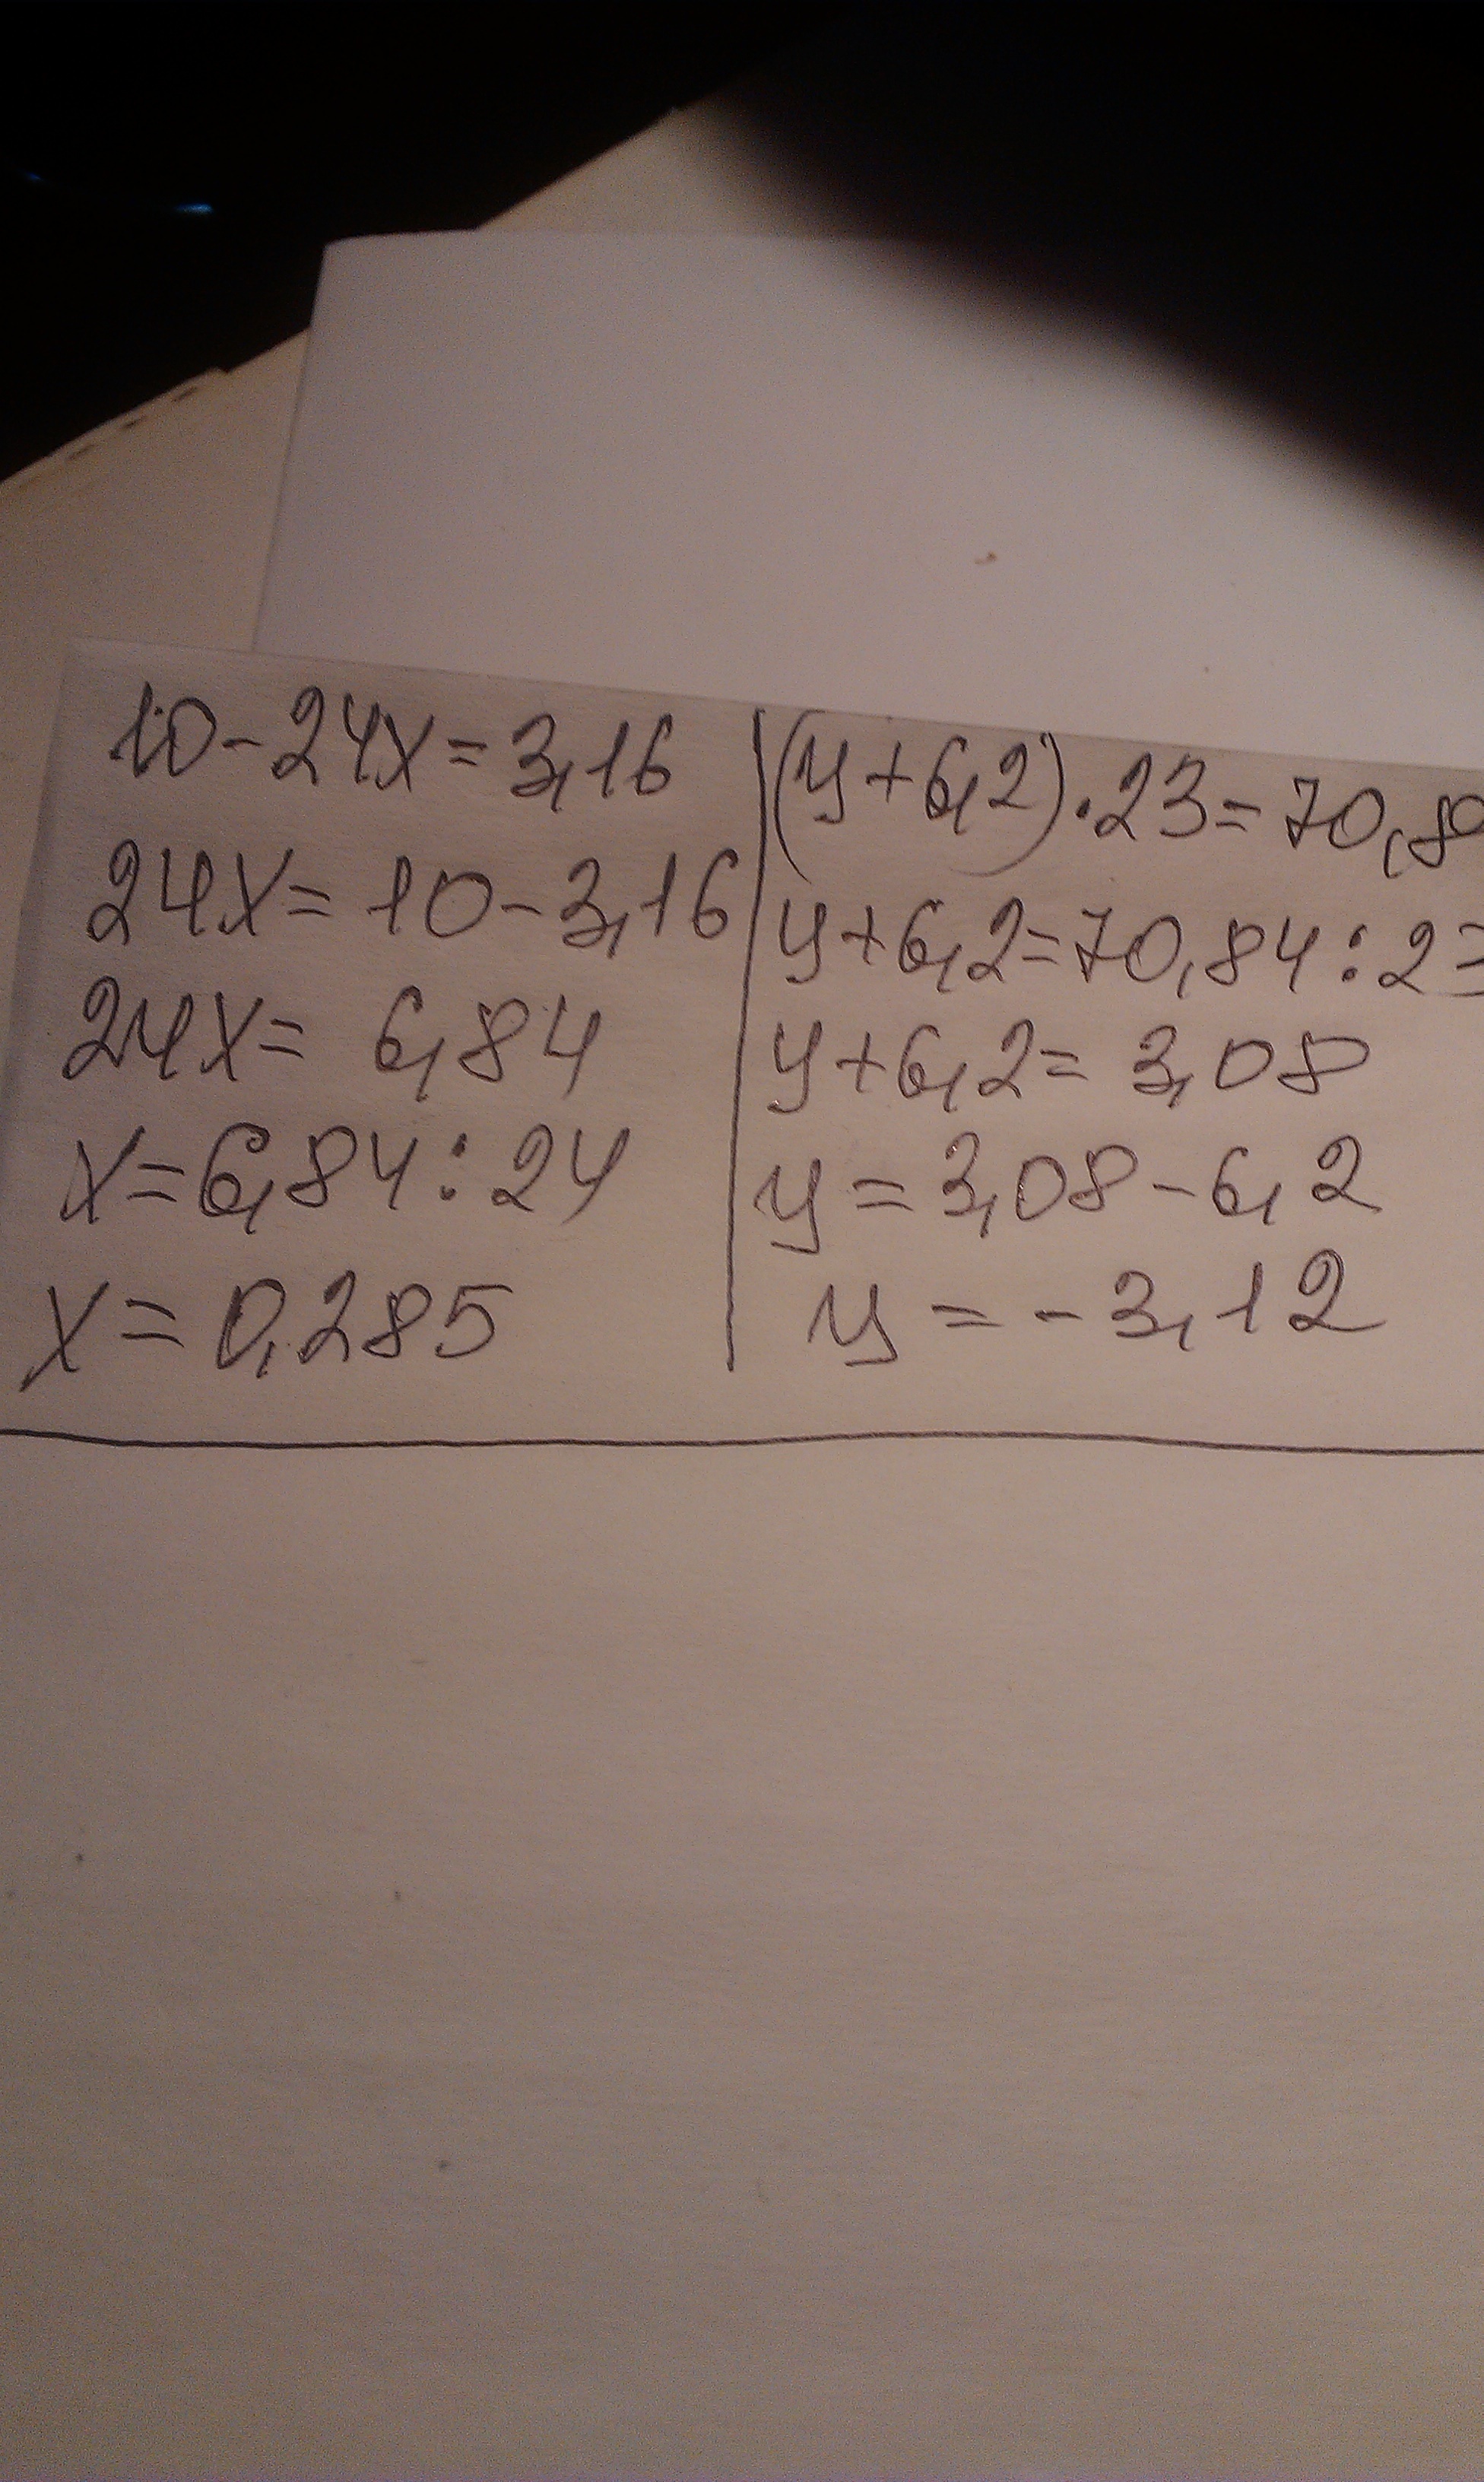 10-24x=3,16
24x=10-3,16
24x= 6,84
x=6,84:24
x=0,285
(y+6,2)·23=70,8
y+6,2=70,84:2
y+6,2=3,08
y=3,08-6,2
y=-3,12